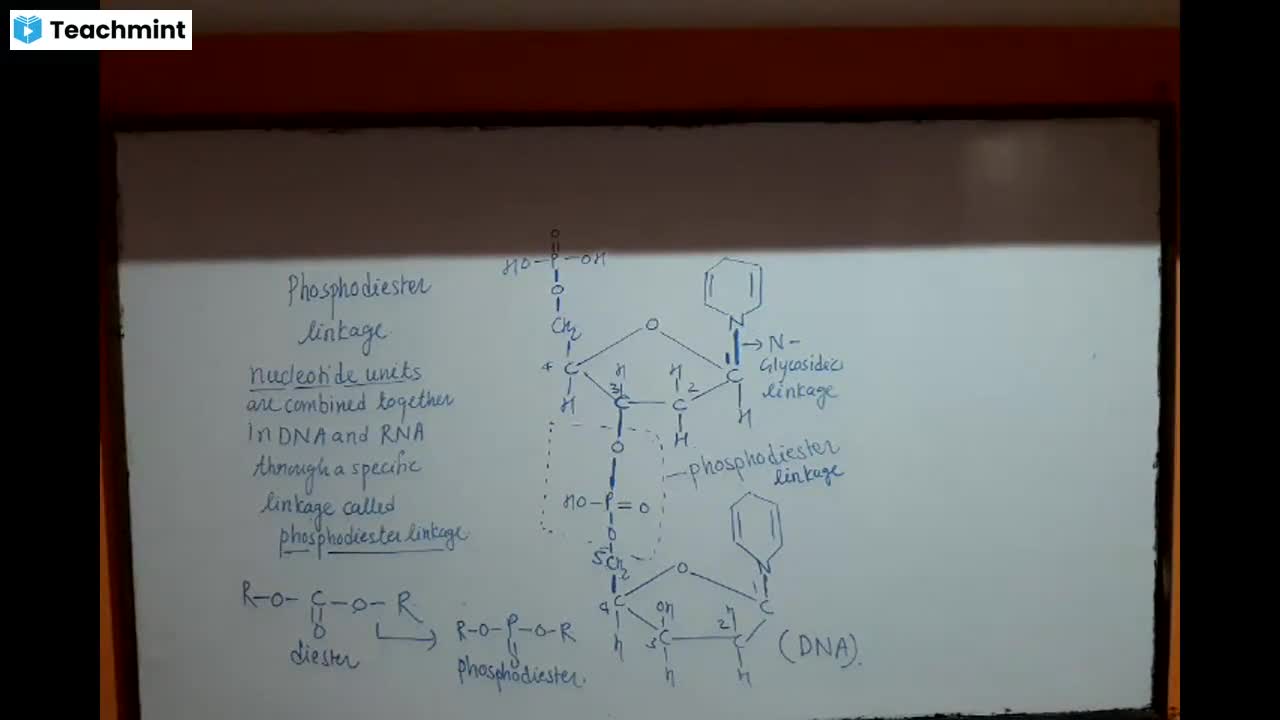 Teachmint
Phosphodiester
linkage
nucleotide units
are combined together
in DNA and RNA
through a specific
linkage called
phosphodiester linkage
R-O-C-O-R
O
diester
R-O-P-O-R
O
phosphodiester
O
HO-P-OH
O
CH2
O
4 C
H
H
3
C
H
2
C
H
N
C
H
N-
Glycosidic
linkage
O
HO-P=O
O
phosphodiester
linkage
5 CH2
O
4 C
H
OH
3 C
H
H
2
C
H
N
C
(DNA).